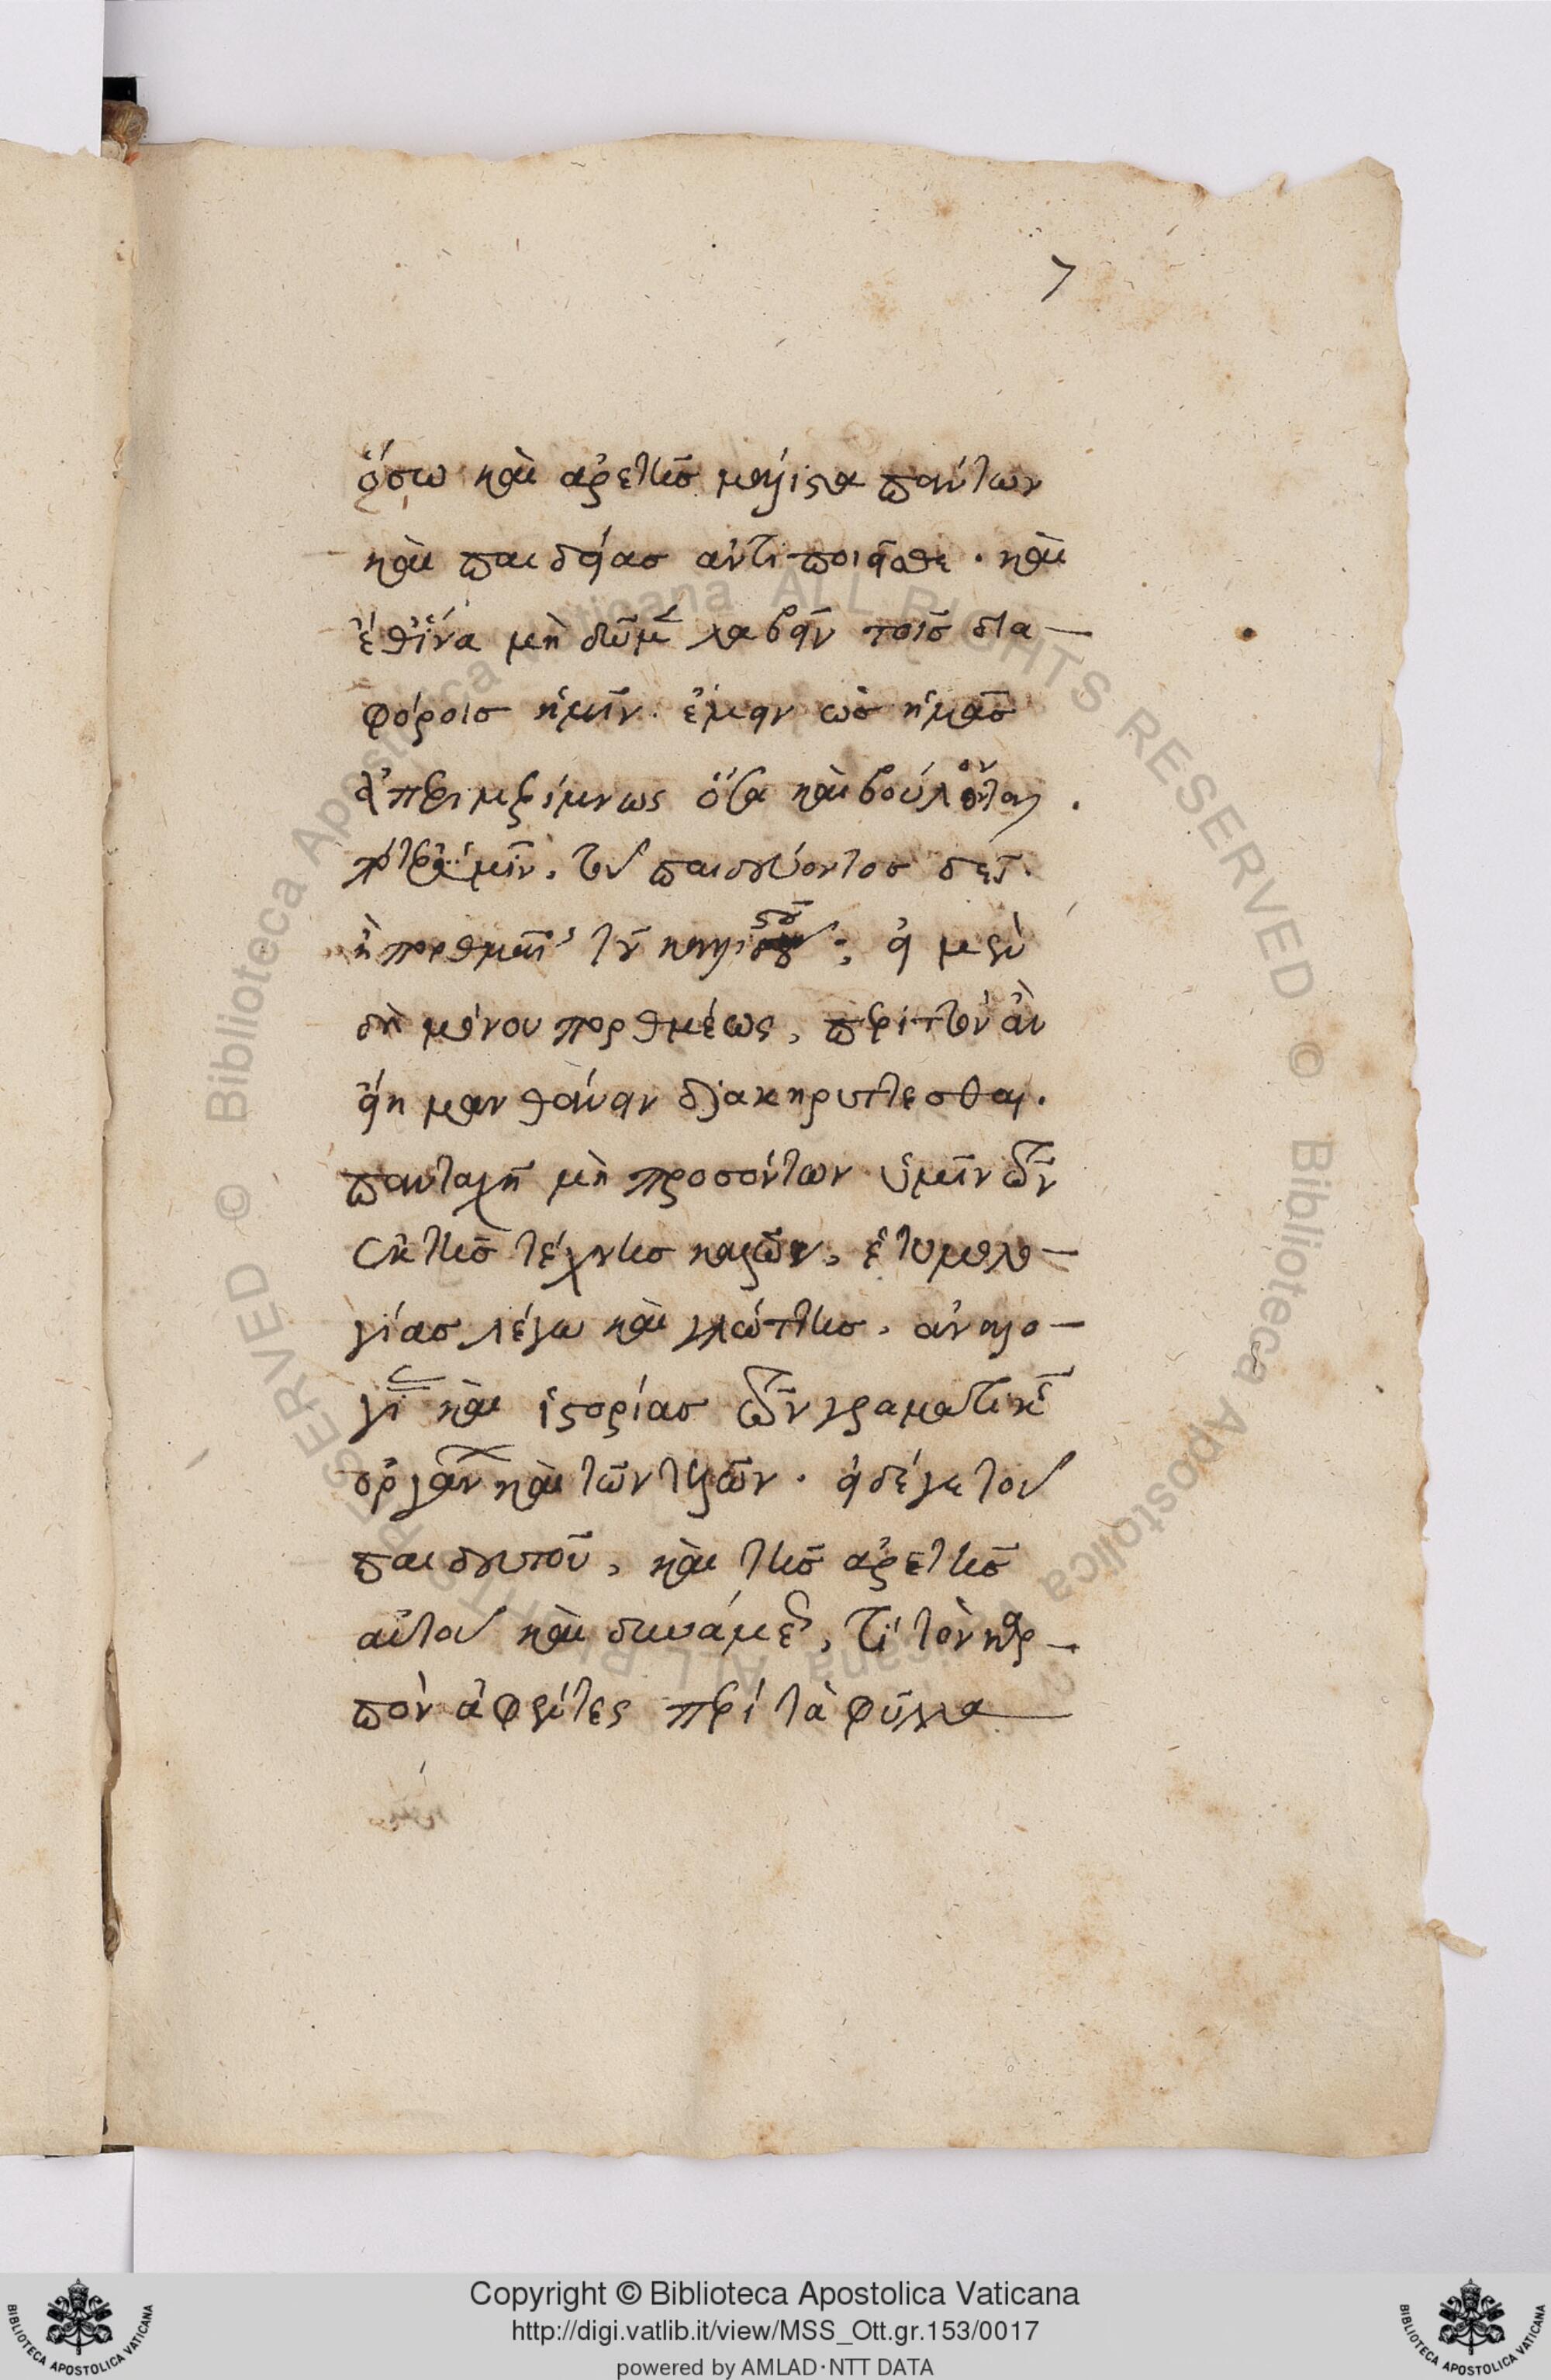 7
ὅσω καὶ ἀρετῆσ μάλιστα πάντων
καὶ παιδείασ ἀντιποιεῖσθε · καὶ
μὴ δῶμεν λαβεῖν τοῖσ δια—
φόροισ ἡμῖν
ὡσ ἡμᾶσ
ὅσα καὶ βούλονται .
παιδεύοντοσ δεῖ.
ἢ πορθμέωσ
εἰ μὲν
δὴ μόνου πορθμέως , περὶ τὸν ἂν
εἴη μανθάνειν διακηρυττεσθαι .
πανταχῆ μὴ προσόντων ὑμῖν τῶν
ἐκ τῆσ τέχνησ καλῶν , ἐτυμολο—
γίασ λέγω καὶ γλώττησ , ἀναλο—
γίας καὶ ἱστορίασ τῶν γραματικῆς
ὀργάνων καὶ τῶν τελῶν · εἰ δέ γε τοῦ
παιδευτοῦ , καὶ τῆσ ἀρετῆσ
αὐτοῦ καὶ δυνάμεως , τί τὸν καρ—
πὸν ἀφέντες περὶ τὰ φύλλα
Copyright © Biblioteca Apostolica Vaticana
http://digi.vatlib.it/view/MSS_Ott.gr.153/0017
powered by AMLAD·NTT DATA
BIBLIOTECA APOSTOLICA VATICANA
BIBLIOTECA APOSTOLICA VATICANA
© Biblioteca Apostolica Vaticana ALL RIGHTS RESERVED
© Biblioteca Apostolica Vaticana ALL RIGHTS RESERVED